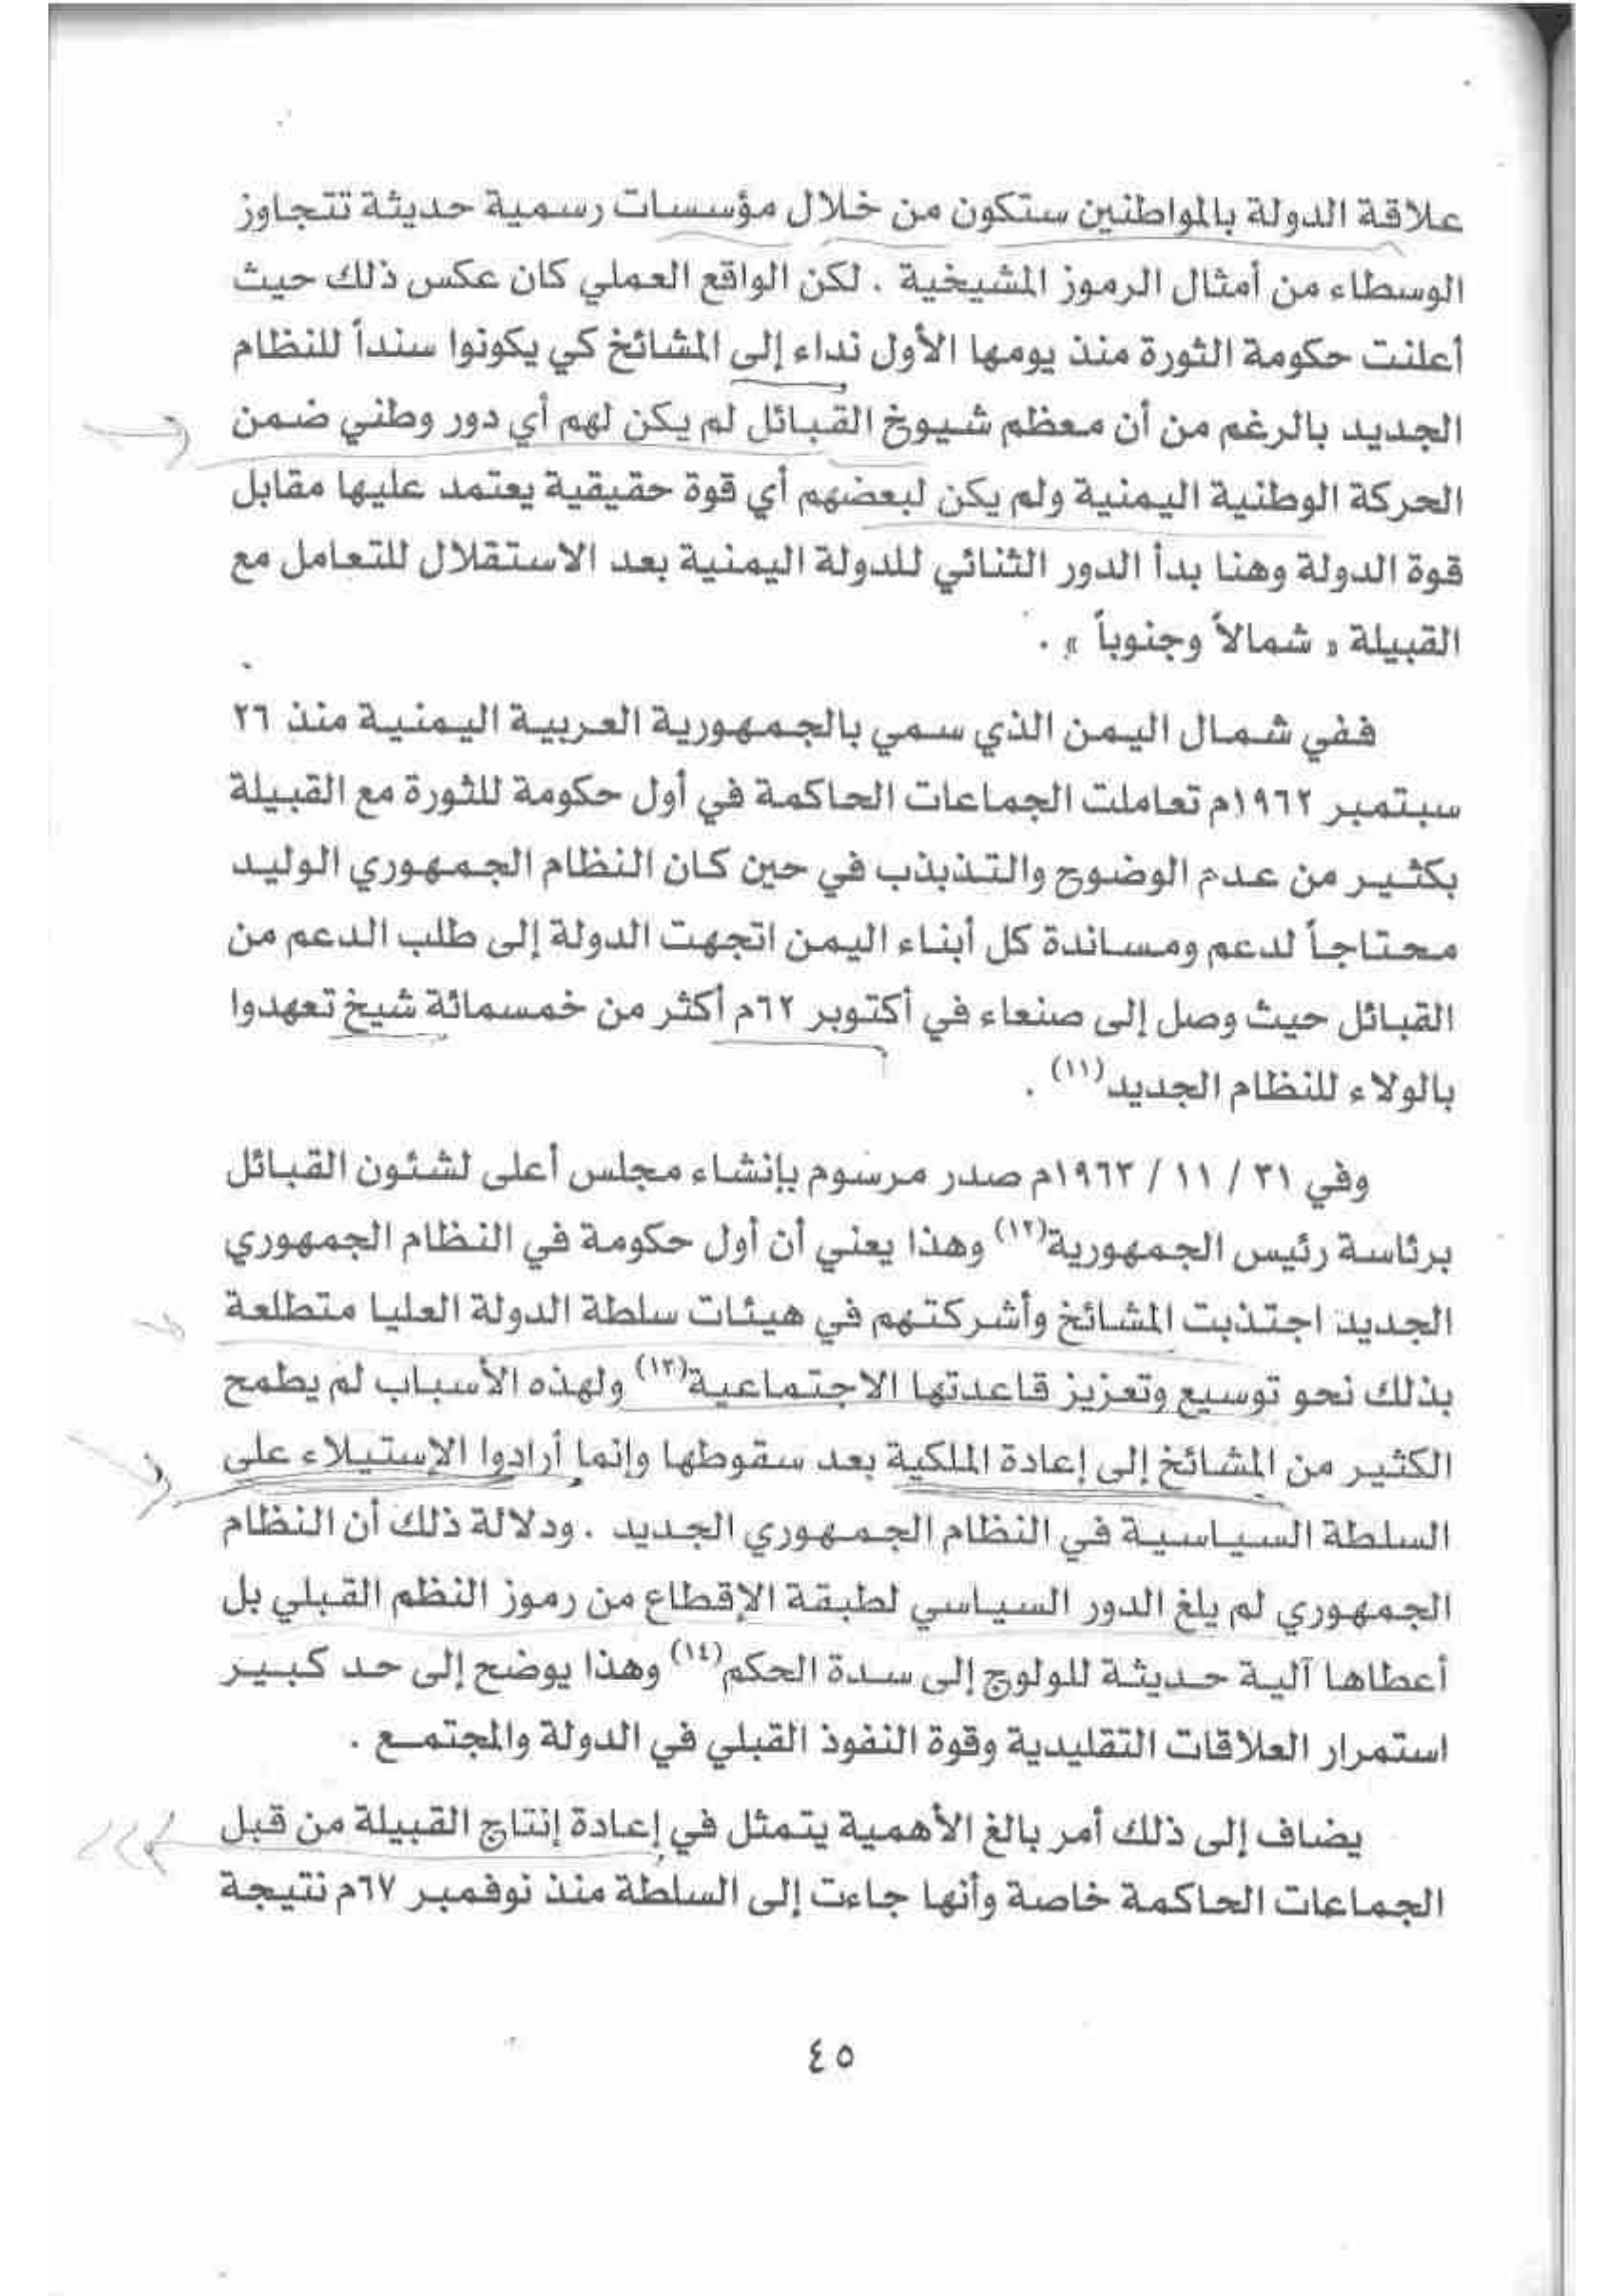 علاقة الدولة بالمواطنين ستكون من خلال مؤسسات رسمية حديثة تتجاوز
الوسطاء من أمثال الرموز المشيخية . لكن الواقع العملي كان عكس ذلك حيث
أعلنت حكومة الثورة منذ يومها الأول نداء إلى المشائخ كي يكونوا سنداً للنظام
الجديد بالرغم من أن معظم شيوخ القبائل لم يكن لهم أي دور وطني ضمن
الحركة الوطنية اليمنية ولم يكن لبعضهم أي قوة حقيقية يعتمد عليها مقابل
قوة الدولة وهنا بدأ الدور الثنائي للدولة اليمنية بعد الاستقلال للتعامل مع
القبيلة « شمالاً وجنوباً » .
ففي شمال اليمن الذي سمي بالجمهورية العربية اليمنية منذ ٢٦
سبتمبر ١٩٦٢م تعاملت الجماعات الحاكمة في أول حكومة للثورة مع القبيلة
بكثير من عدم الوضوح والتذبذب في حين كان النظام الجمهوري الوليد
محتاجاً لدعم ومساندة كل أبناء اليمن اتجهت الدولة إلى طلب الدعم من
القبائل حيث وصل إلى صنعاء في أكتوبر ٦٢م أكثر من خمسمائة شيخ تعهدوا
بالولاء للنظام الجديد(١١) .
وفي ٣١ / ١١ / ١٩٦٣م صدر مرسوم بإنشاء مجلس أعلى لشئون القبائل
برئاسة رئيس الجمهورية(١٢) وهذا يعني أن أول حكومة في النظام الجمهوري
الجديد اجتذبت المشائخ وأشركتهم في هيئات سلطة الدولة العليا متطلعة
بذلك نحو توسيع وتعزيز قاعدتها الاجتماعية(١٣) ولهذه الأسباب لم يطمح
الكثير من المشائخ إلى إعادة الملكية بعد سقوطها وإنما أرادوا الإستيلاء على
السلطة السياسية في النظام الجمهوري الجديد . ودلالة ذلك أن النظام
الجمهوري لم يلغ الدور السياسي لطبقة الإقطاع من رموز النظم القبلي بل
أعطاها آلية حديثة للولوج إلى سدة الحكم(١٤) وهذا يوضح إلى حد كبير
استمرار العلاقات التقليدية وقوة النفوذ القبلي في الدولة والمجتمع .
يضاف إلى ذلك أمر بالغ الأهمية يتمثل في إعادة إنتاج القبيلة من قبل
الجماعات الحاكمة خاصة وأنها جاءت إلى السلطة منذ نوفمبر ٦٧م نتيجة
٤٥